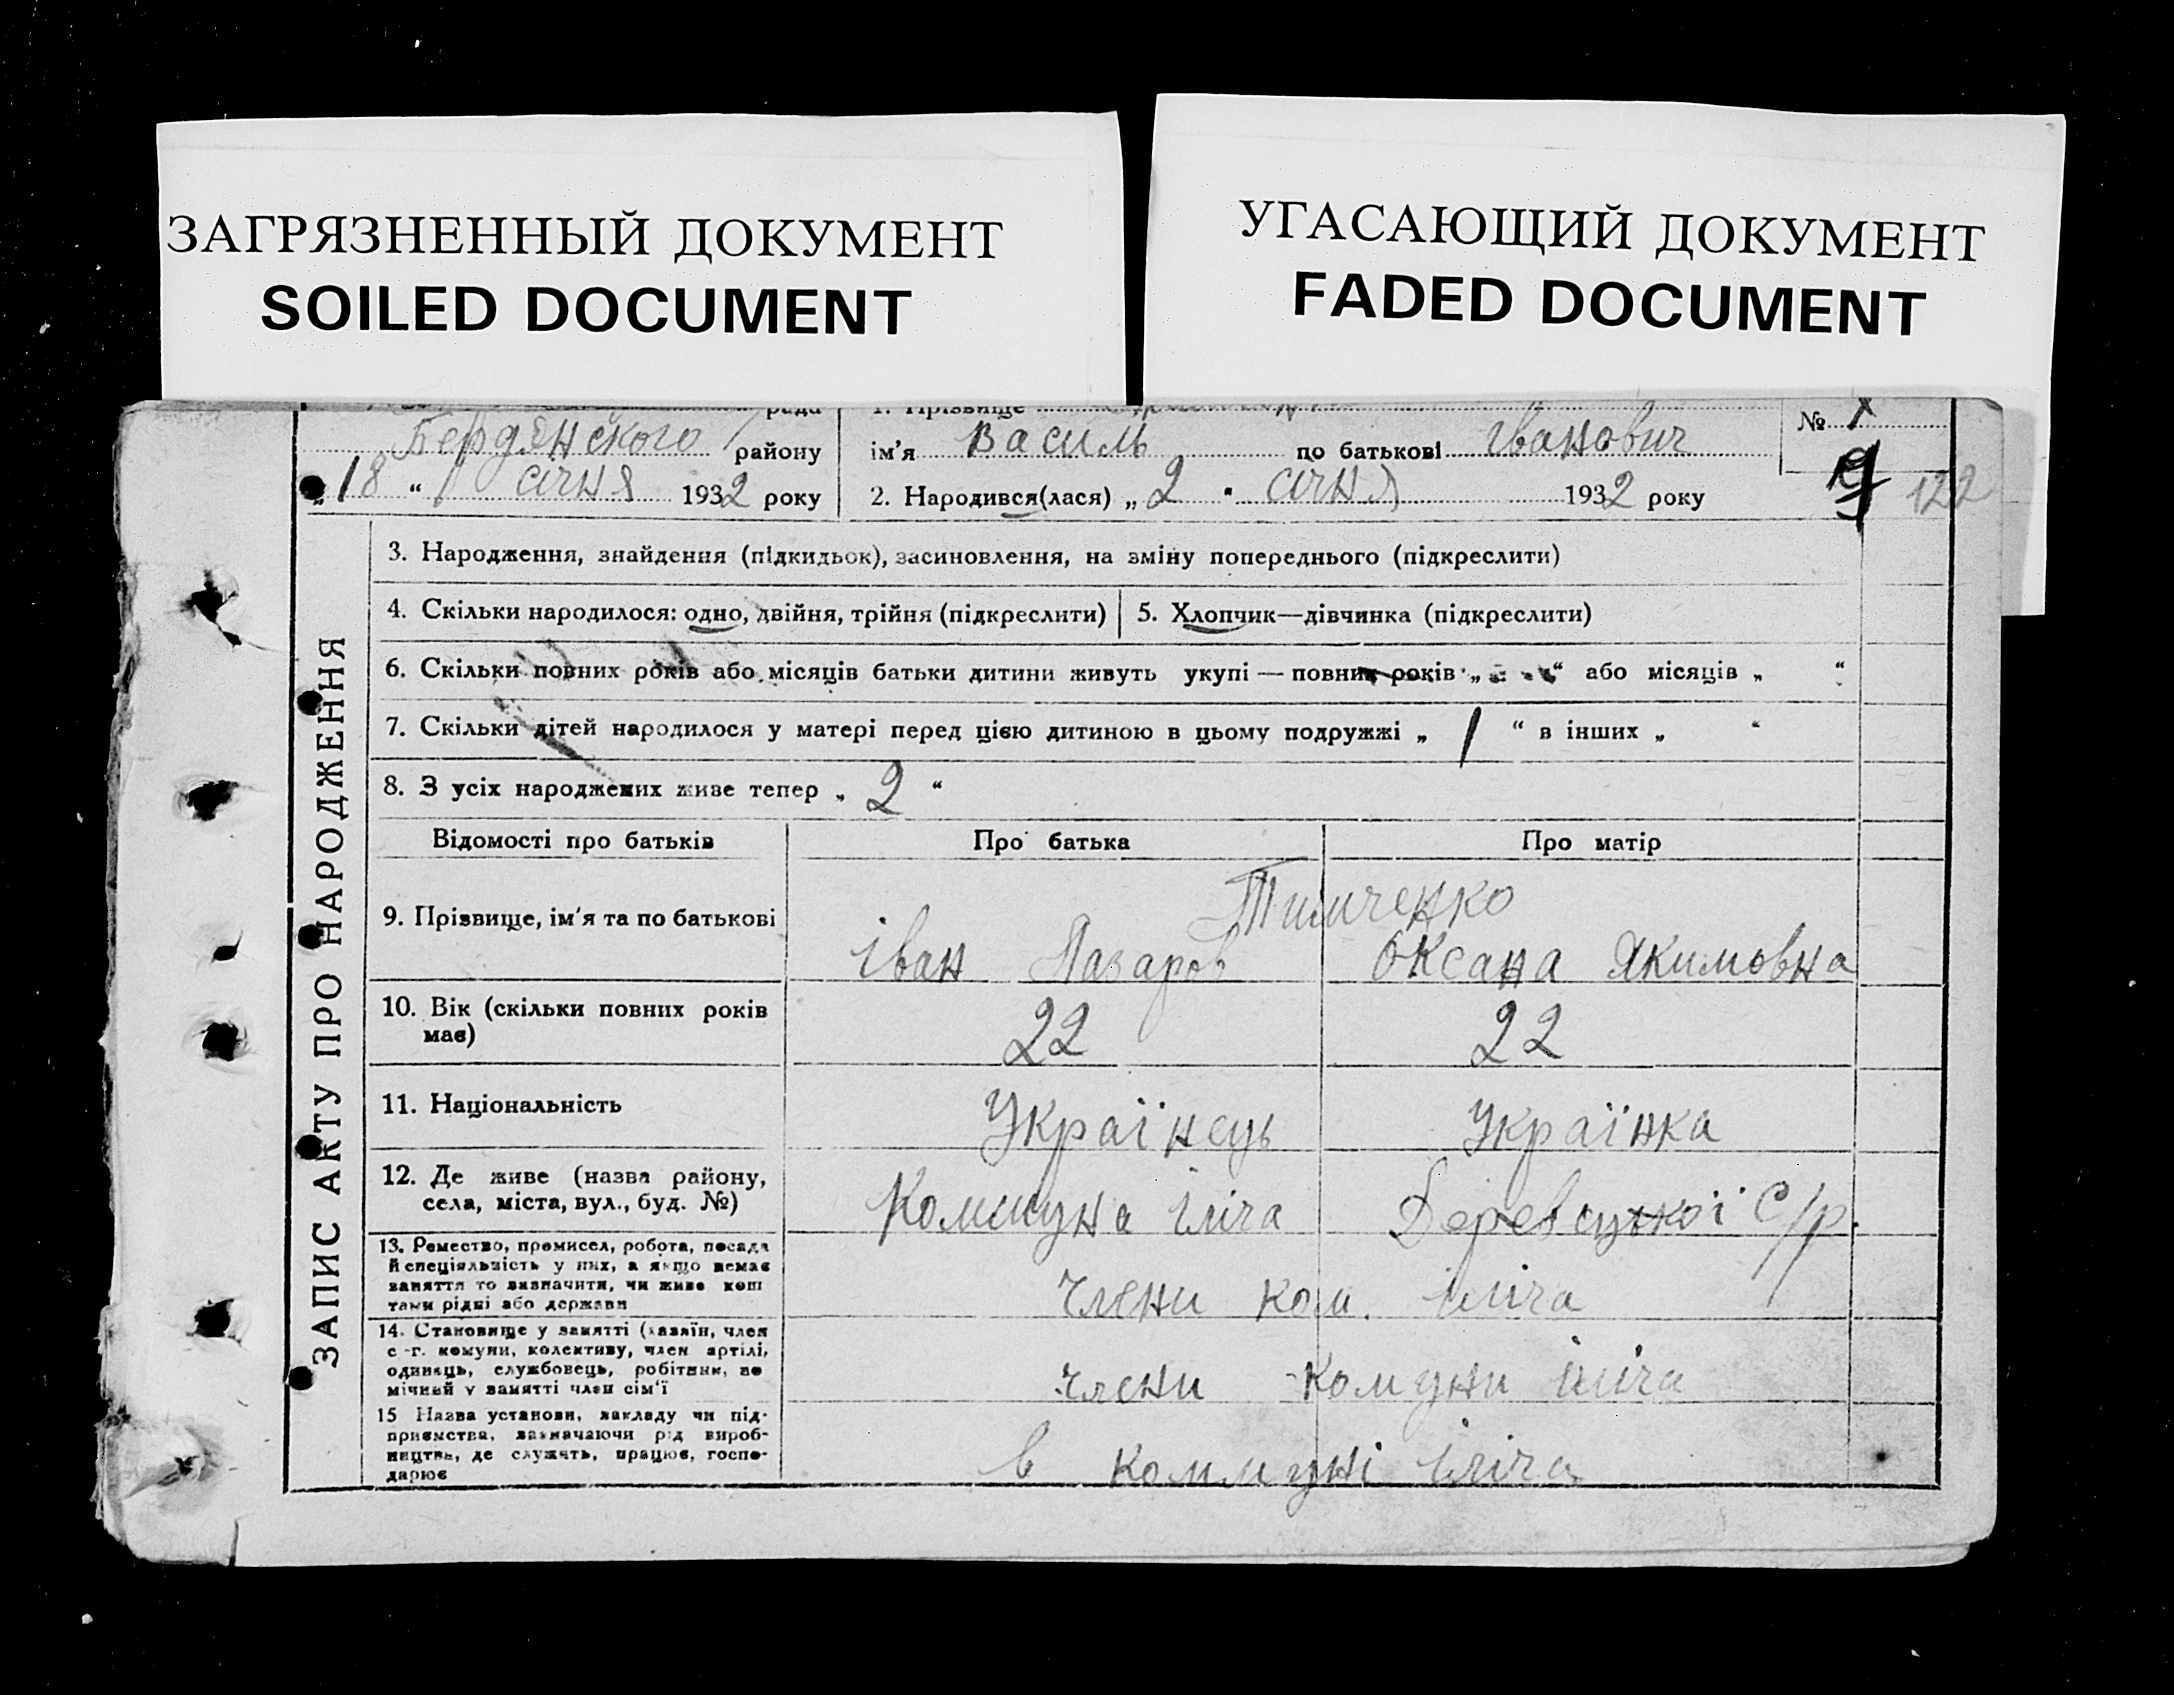 ЗАГРЯЗНЕННЫЙ ДОКУМЕНТ
SOILED DOCUMENT
УГАСАЮЩИЙ ДОКУМЕНТ
FADED DOCUMENT
рада
Бердянського району
„18“ січня 1932 року
1. Прізвище
ім'я Василь по батькові Іванович
2. Народився(лася) „2“ січня 1932 року
№
122
ЗАПИС АКТУ ПРО НАРОДЖЕННЯ
3. Народження, знайдення (підкидьок), засиновлення, на зміну попереднього (підкреслити)
4. Скільки народилося: одно, двійня, трійня (підкреслити)
5. Хлопчик—дівчинка (підкреслити)
6. Скільки повних років або місяців батьки дитини живуть укупі — повних років „ “ або місяців „ “
7. Скільки дітей народилося у матері перед цією дитиною в цьому подружжі „ 1 “ в інших „ “
8. З усіх народжених живе тепер „ 2 “
Відомості про батьків Про батька Про матір
9. Прізвище, ім'я та по батькові
Тимченко
Іван Лазаров Оксана Якимовна
10. Вік (скільки повних років має)
22 22
11. Національність
Українець Українка
12. Де живе (назва району,
села, міста, вул., буд. №)
Коммуна Ілліча С/р.
13. Ремество, промисел, робота, посада
й спеціяльність у них, а якщо немає
заняття то визначити, чи живе кош
тами рідні або держави
члени ком. Ілліча
14. Становище у занятті (хазяїн, член
с.-г. комуни, колективу, член артілі,
одинець, службовець, робітник, по
мічний у занятті член сім'ї
члени комуни Ілліча
15 Назва установи, закладу чи під-
приємства, зазначаючи рід вироб-
ництва, де служить, працює, госпо-
дарює
в коммуні Ілліча